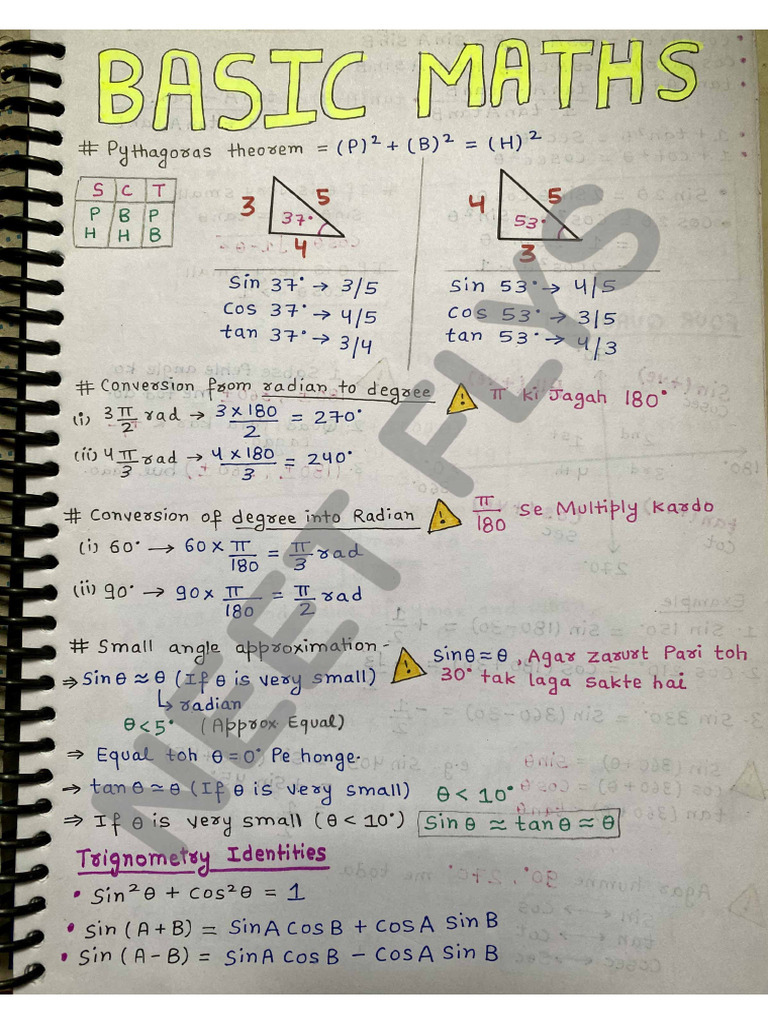 BASIC MATHS
# Pythagoras theorem = (P)² + (B)² = (H)²
S C T
P B P
H H B
3 5
37°
4
4 5
53°
3
Sin 37° → 3/5
Cos 37° → 4/5
tan 37° → 3/4
Sin 53° → 4/5
Cos 53° → 3/5
tan 53° → 4/3
# Conversion from radian to degree ⚠ π ki Jagah 180°
(i) 3π/2 rad → 3×180/2 = 270°
(ii) 4π/3 rad → 4×180/3 = 240°
# Conversion of degree into Radian ⚠ π/180 se Multiply Kardo
(i) 60° → 60×π/180 = π/3 rad
(ii) 90° → 90×π/180 = π/2 rad
# Small angle approximation -
⚠ Sinθ≈θ, Agar zarurt Pari toh
30° tak laga sakte hai
⇒ Sinθ ≈ θ (If θ is very small)
↳ radian
θ<5° (Approx Equal)
⇒ Equal toh θ=0° Pe honge.
→ tanθ ≈ θ (If θ is very small) θ < 10°
⇒ If θ is very small (θ < 10°) Sinθ ≈ tanθ ≈ θ
Trignometry Identities
• Sin²θ + Cos²θ = 1
• Sin (A+B) = SinA CosB + CosA SinB
• Sin (A-B) = SinA CosB - CosA SinB
NEET FLYS